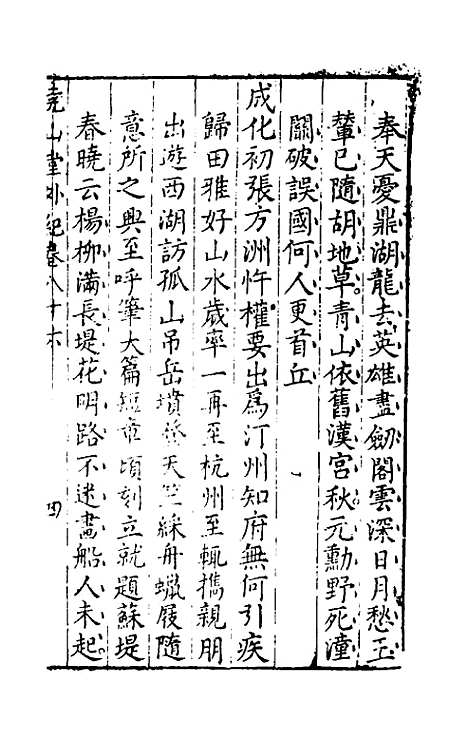 奉天憂鼎湖龍去英雄盡劒閣雲深日月愁玉
輦已隨胡地草青山依舊漢宫秋元勳野死潼
關破誤國何人更首丘
成化初張方洲忤權要出爲汀州知府無何引疾
歸田雅好山水歲率一再至杭州至輒携親朋
出遊西湖訪孤山吊岳墳登天竺綵舟蠟屐隨
意所之興至呼筆大篇短章頃刻立就題蘇堤
春曉云楊柳滿長堤花明路不迷畫船人未起
堯山堂外紀卷八十六
四